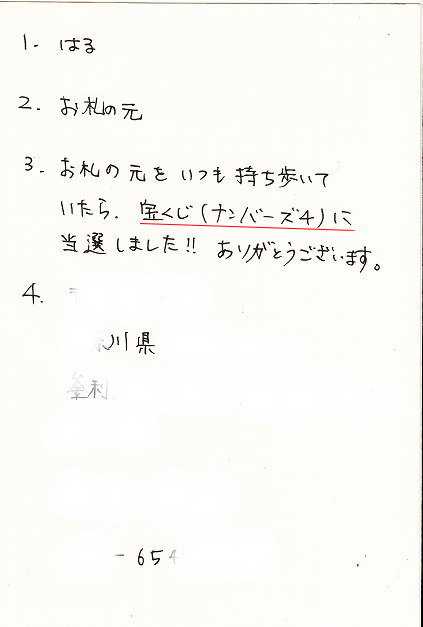 1. はる
2. お札の元
3. お札の元をいつも持ち歩いて
いたら、宝くじ(ナンバーズ4)に
当選しました!! ありがとうございます。
4.
川県
釜利
-654